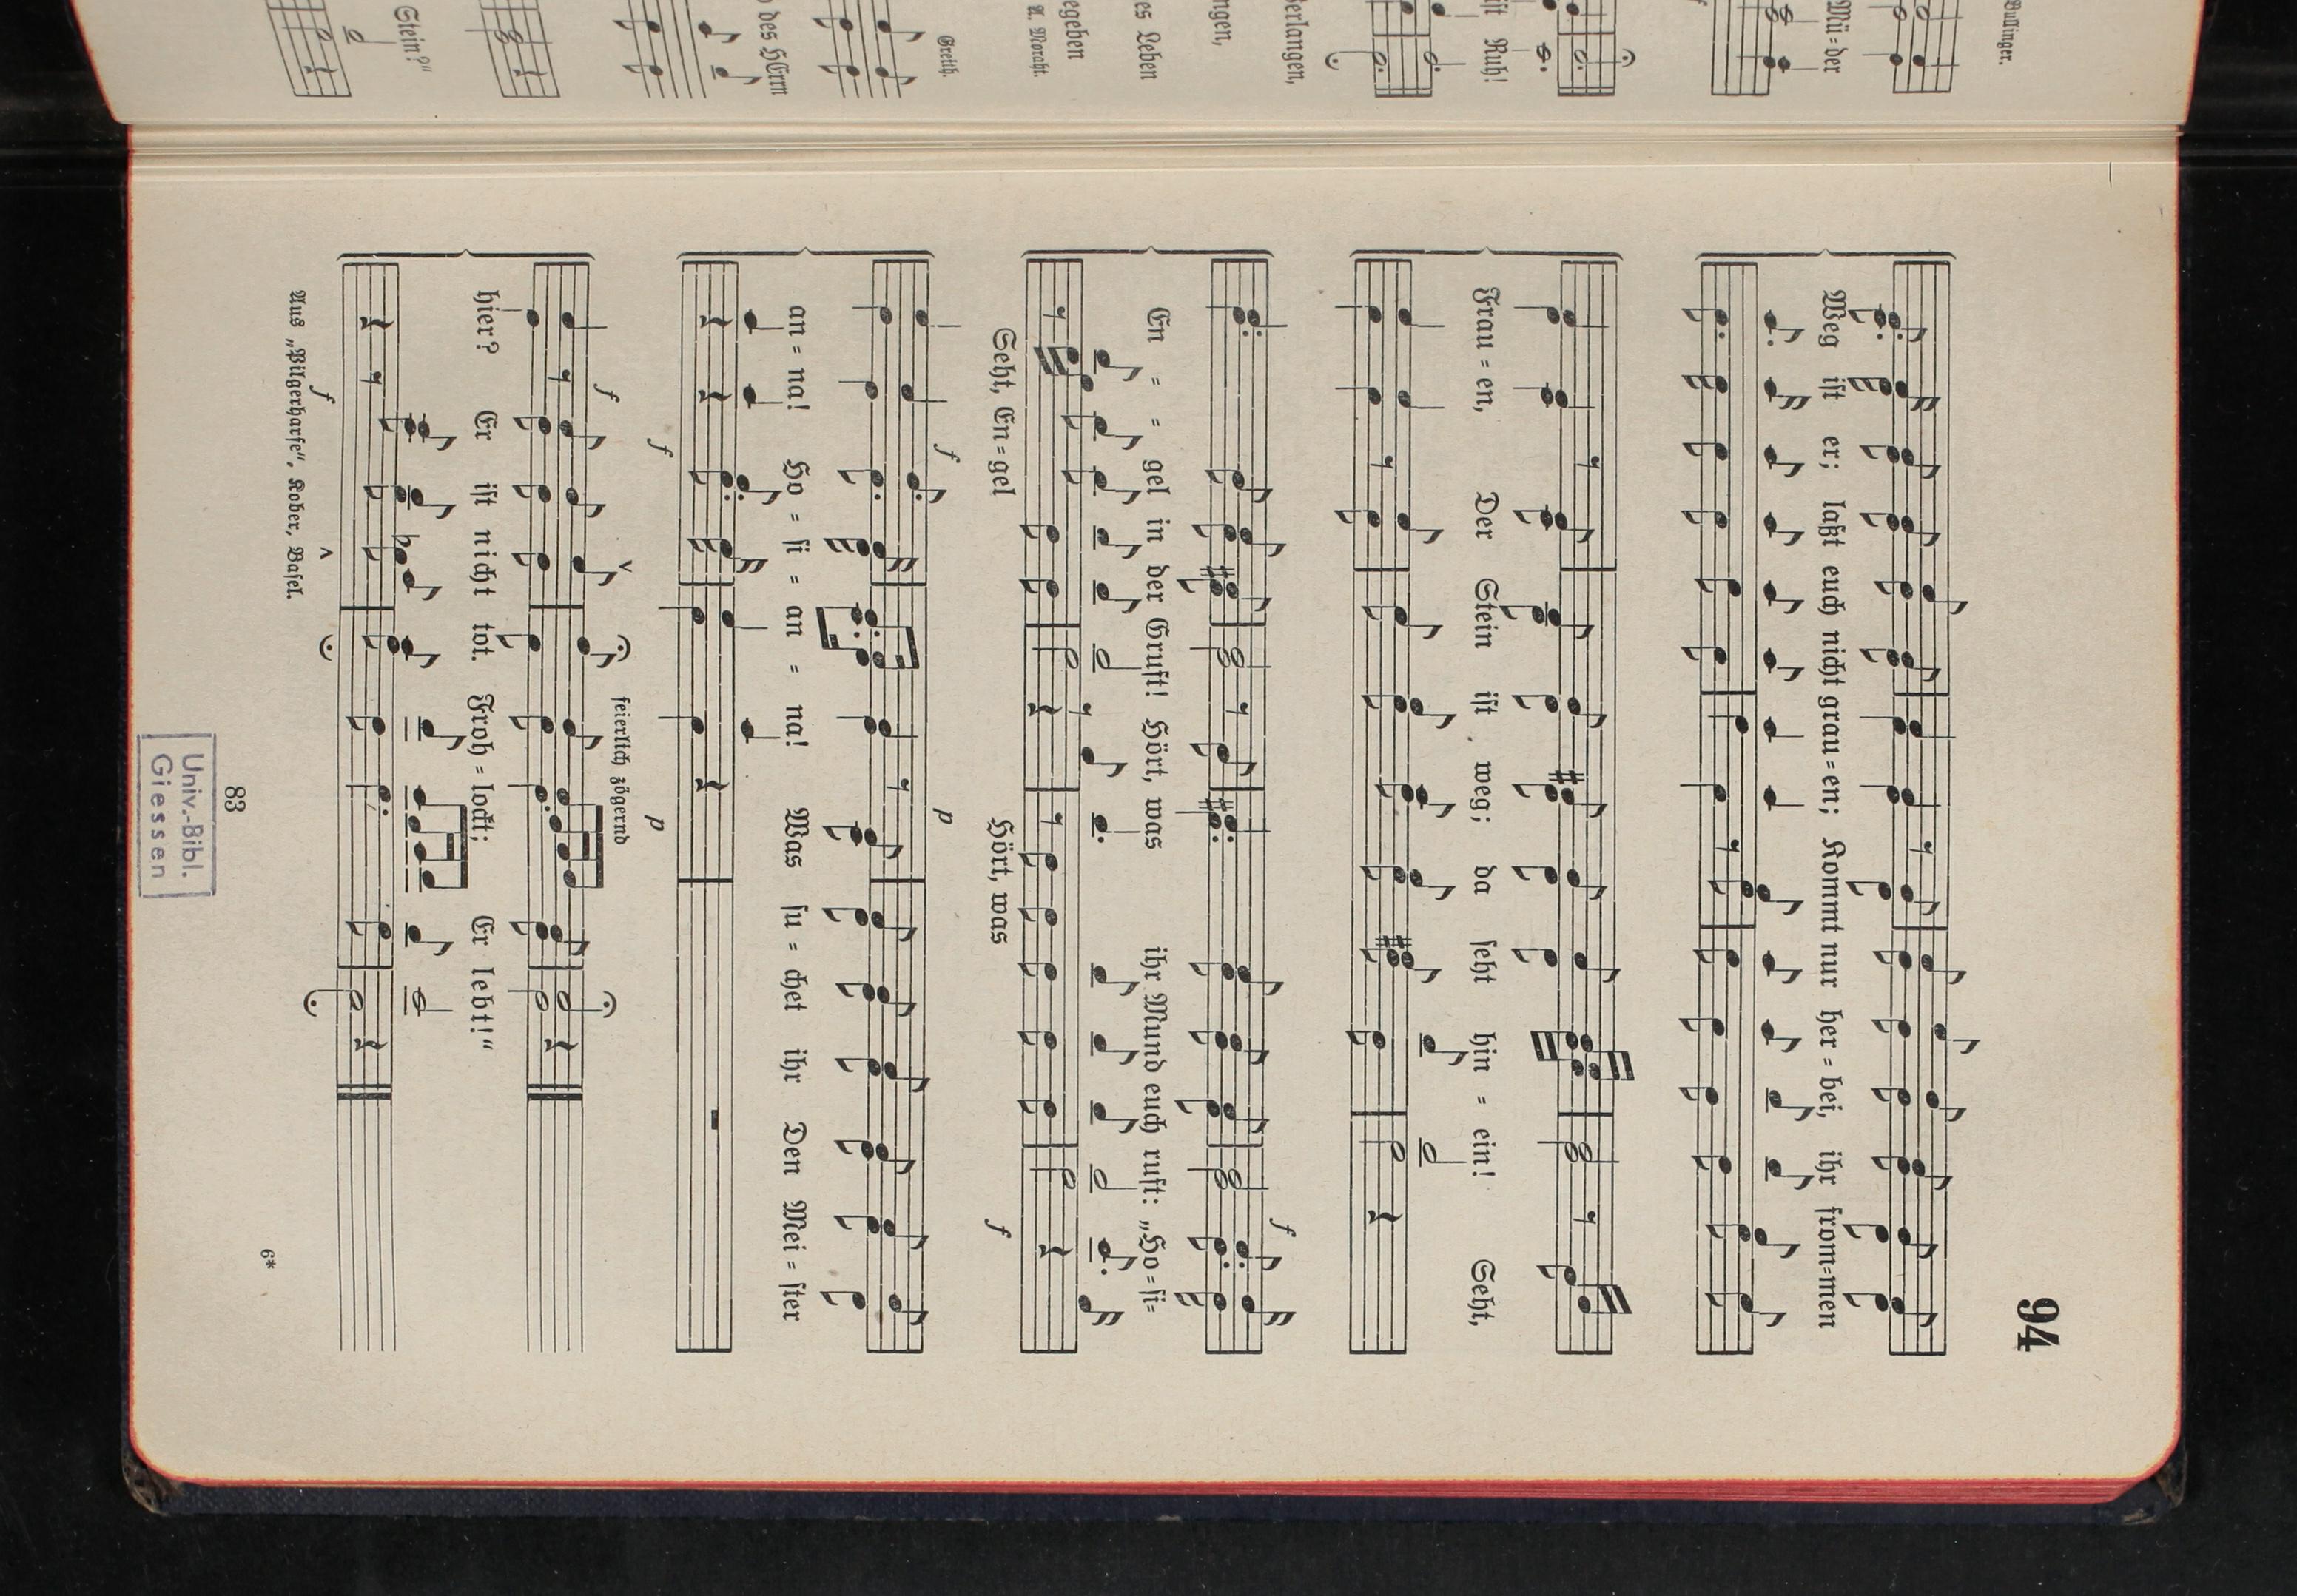 Bullinger.
Mü=der
ist Ruh!
erlangen,
ngen,
es Leben
egeben
A. Moraht.
Greith.
des HErrn
Stein?"
94
Weg ist er; laßt euch nicht grau=en; Kommt nur her=bei, ihr from=men
Frau=en, Der Stein ist weg; da seht hin=ein! Seht,
f
En = = gel in der Gruft! Hört, was ihr Mund euch ruft: „Ho=si=
Seht, En=gel Hört, was
f
f p
an=na! Ho=si=an=na! Was su=chet ihr Den Mei=ster
f p
f feierlich zögernd
hier? Er ist nicht tot. Froh=lockt; Er lebt!"
f
Aus „Pilgerharfe", Kober, Basel.
83
6*
Univ.-Bibl.
Giessen